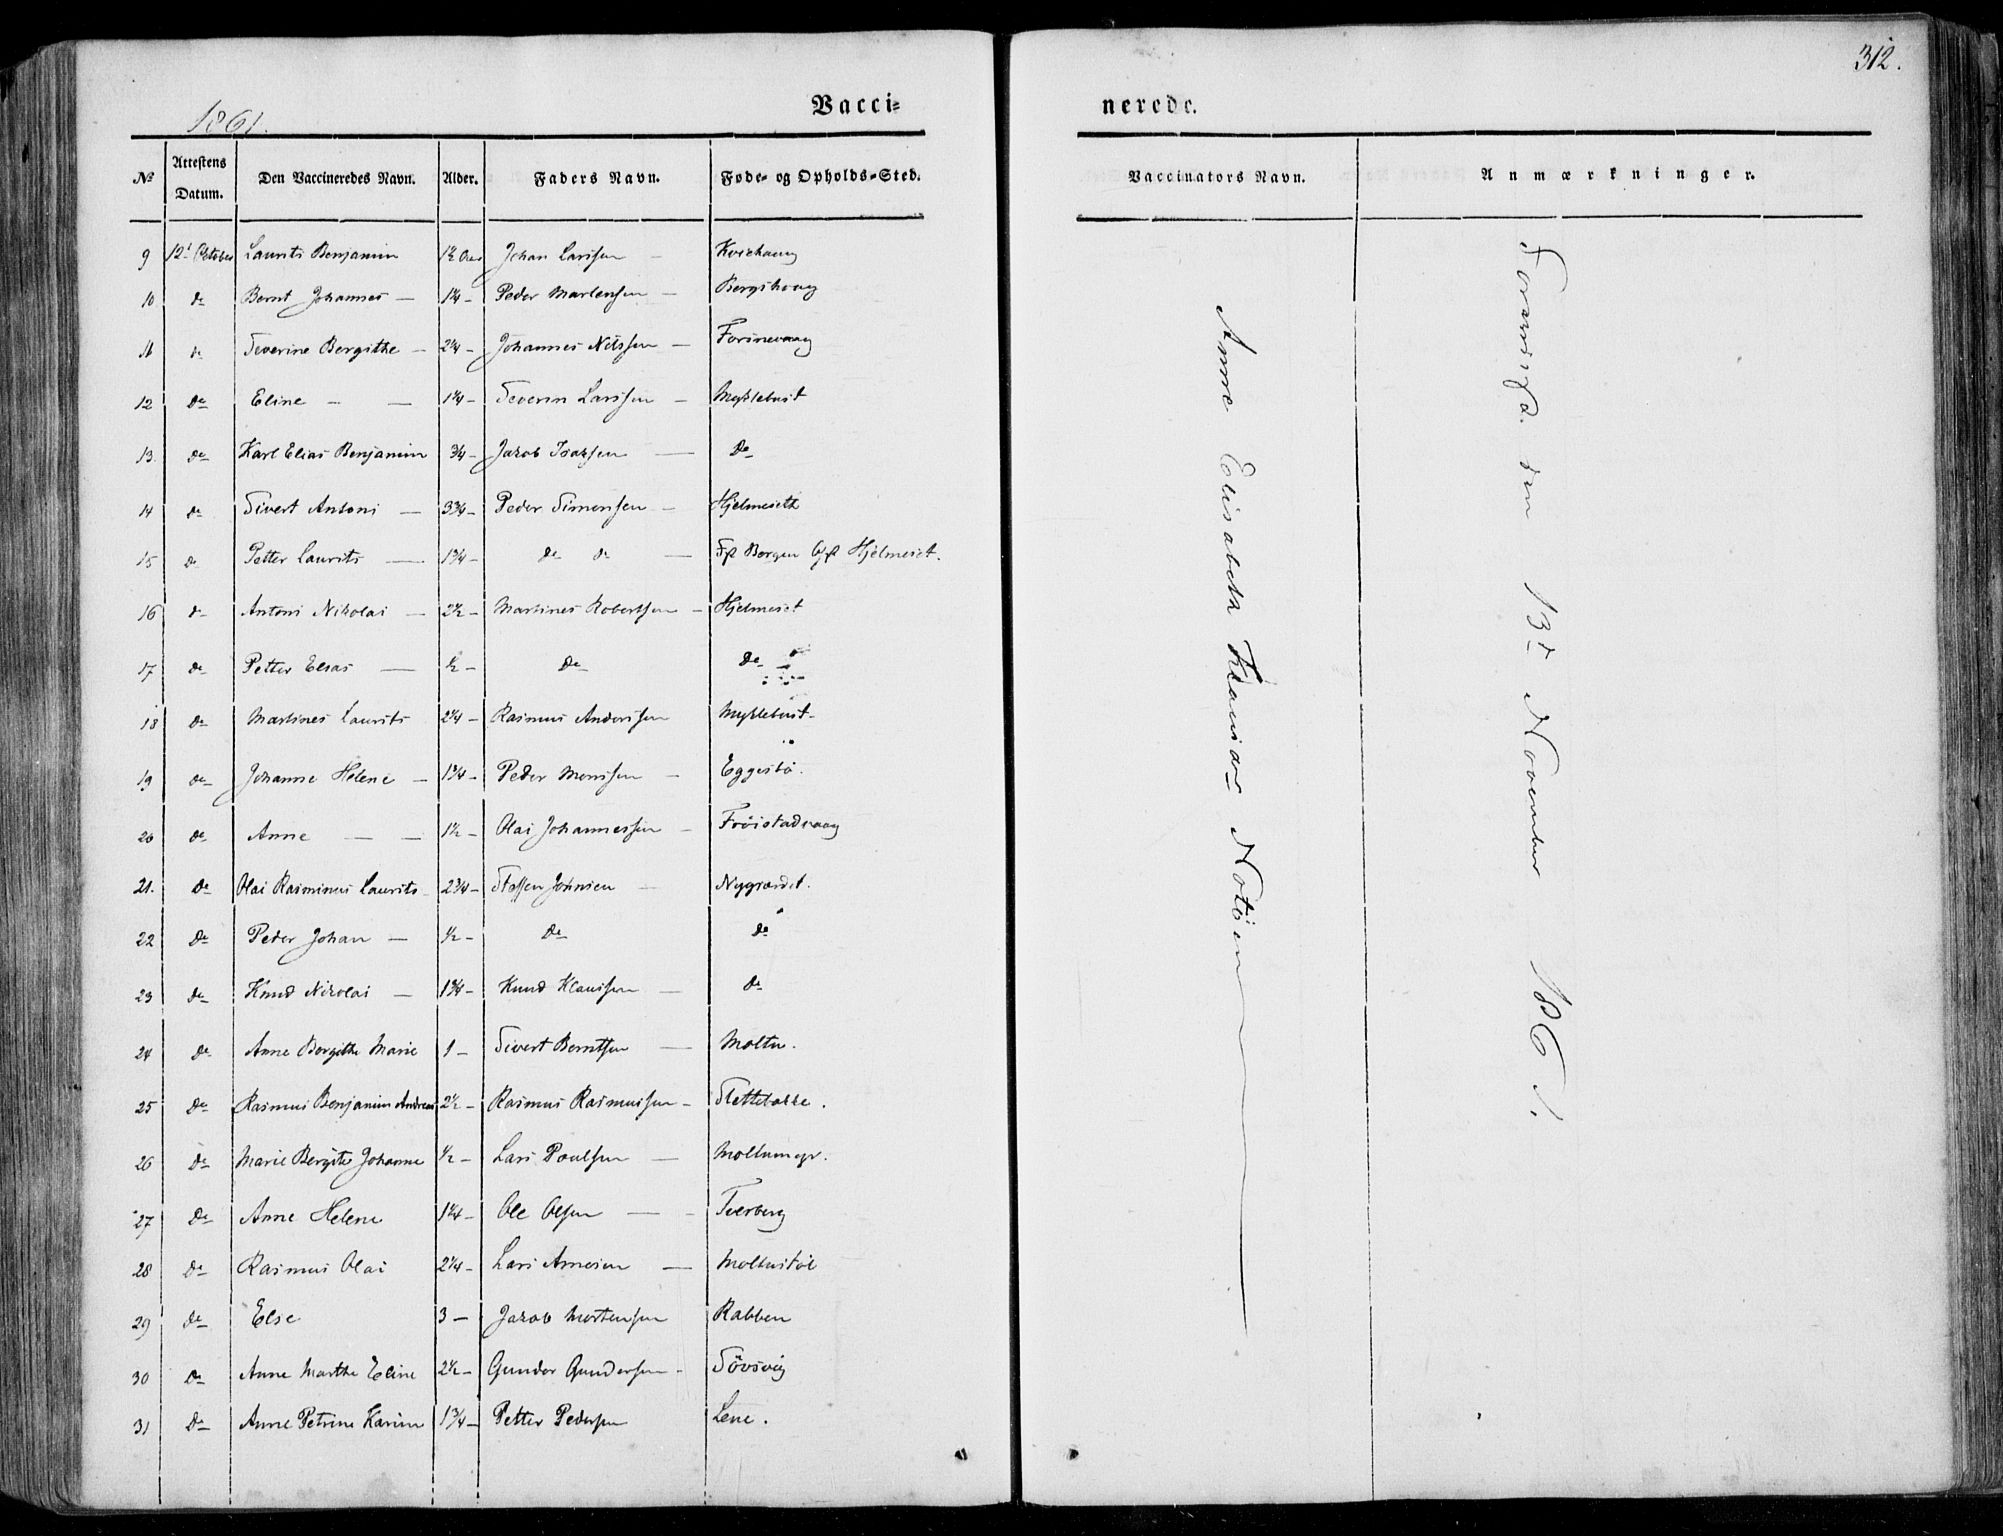 312.
1861.
Vacci=
nerede.
No
Attestens Datum.
Den Vaccineredes Navn.
Alder.
Faders Navn.
Føde- og Opholds-Sted.
Vaccinators Navn.
Anmærkninger.
9 12t October Laurits Benjamin 1½ Johan Larssen
10 do Bernt Johannes — 1¼ — Peder Martensen — Bergshoug
11 do Severine Bergithe — 2¼ — Johannes Nilssen — Forsnevaag
12 do Eline — — 1¼ — Severin Larssen — Myklebust
13. do Karl Elias Benjamin ¾ — Jakob Isaksen — do
14 do Sivert Antoni — 3¾ — Peder Simonsen — Hjelmeseth
15 do Petter Laurits — 1¾ — do do — Fst Bergen Opst Hjelmeset.
16 do Antoni Nikolai — 2½ — Martines Robertsen — Hjelmeset
17 do Petter Elias — ½ — do do
18 do Martines Laurits 2¼ — Rasmus Anderssen Myklebust
19 do Johanne Helene — 1¾ — Peder Monssen — Eggesbø.
20 do Anne — — 1½ — Olai Johannessen — Frøistadvaag
21. do Olai Rasminus Laurits 2¾ — Steffen Johnsen — Nygrædet.
22 do Peder Johan — ½ — do do
23 do Knud Nikolai — 1¾ — Knud Klaussen — do
24 do Anne Bergithe Marie 1 — Sivert Berntsen — Moltu.
25 do Rasmus Benjamin Andreas 2½ — Rasmus Rasmussen — Slettebakke.
26 do Marie Bergite Johanne ½ — Lars Poulsen — Moltumyr.
27 do Anne Helene 1¼ — Ole Olsen — Tverberg
28 do Rasmus Olai 2¼ — Lars Arnesen — Moltustøl
29 do Else 3 — Jakob Mortensen Rabben
30 do Anne Marthe Eline 2½ — Gunder Gundersen — Søvsvig
31 do Anne Petrine Karine 1¾ — Petter Pedersen Lene.
Anne Elisabeth Notøen
den 13d November 1861.